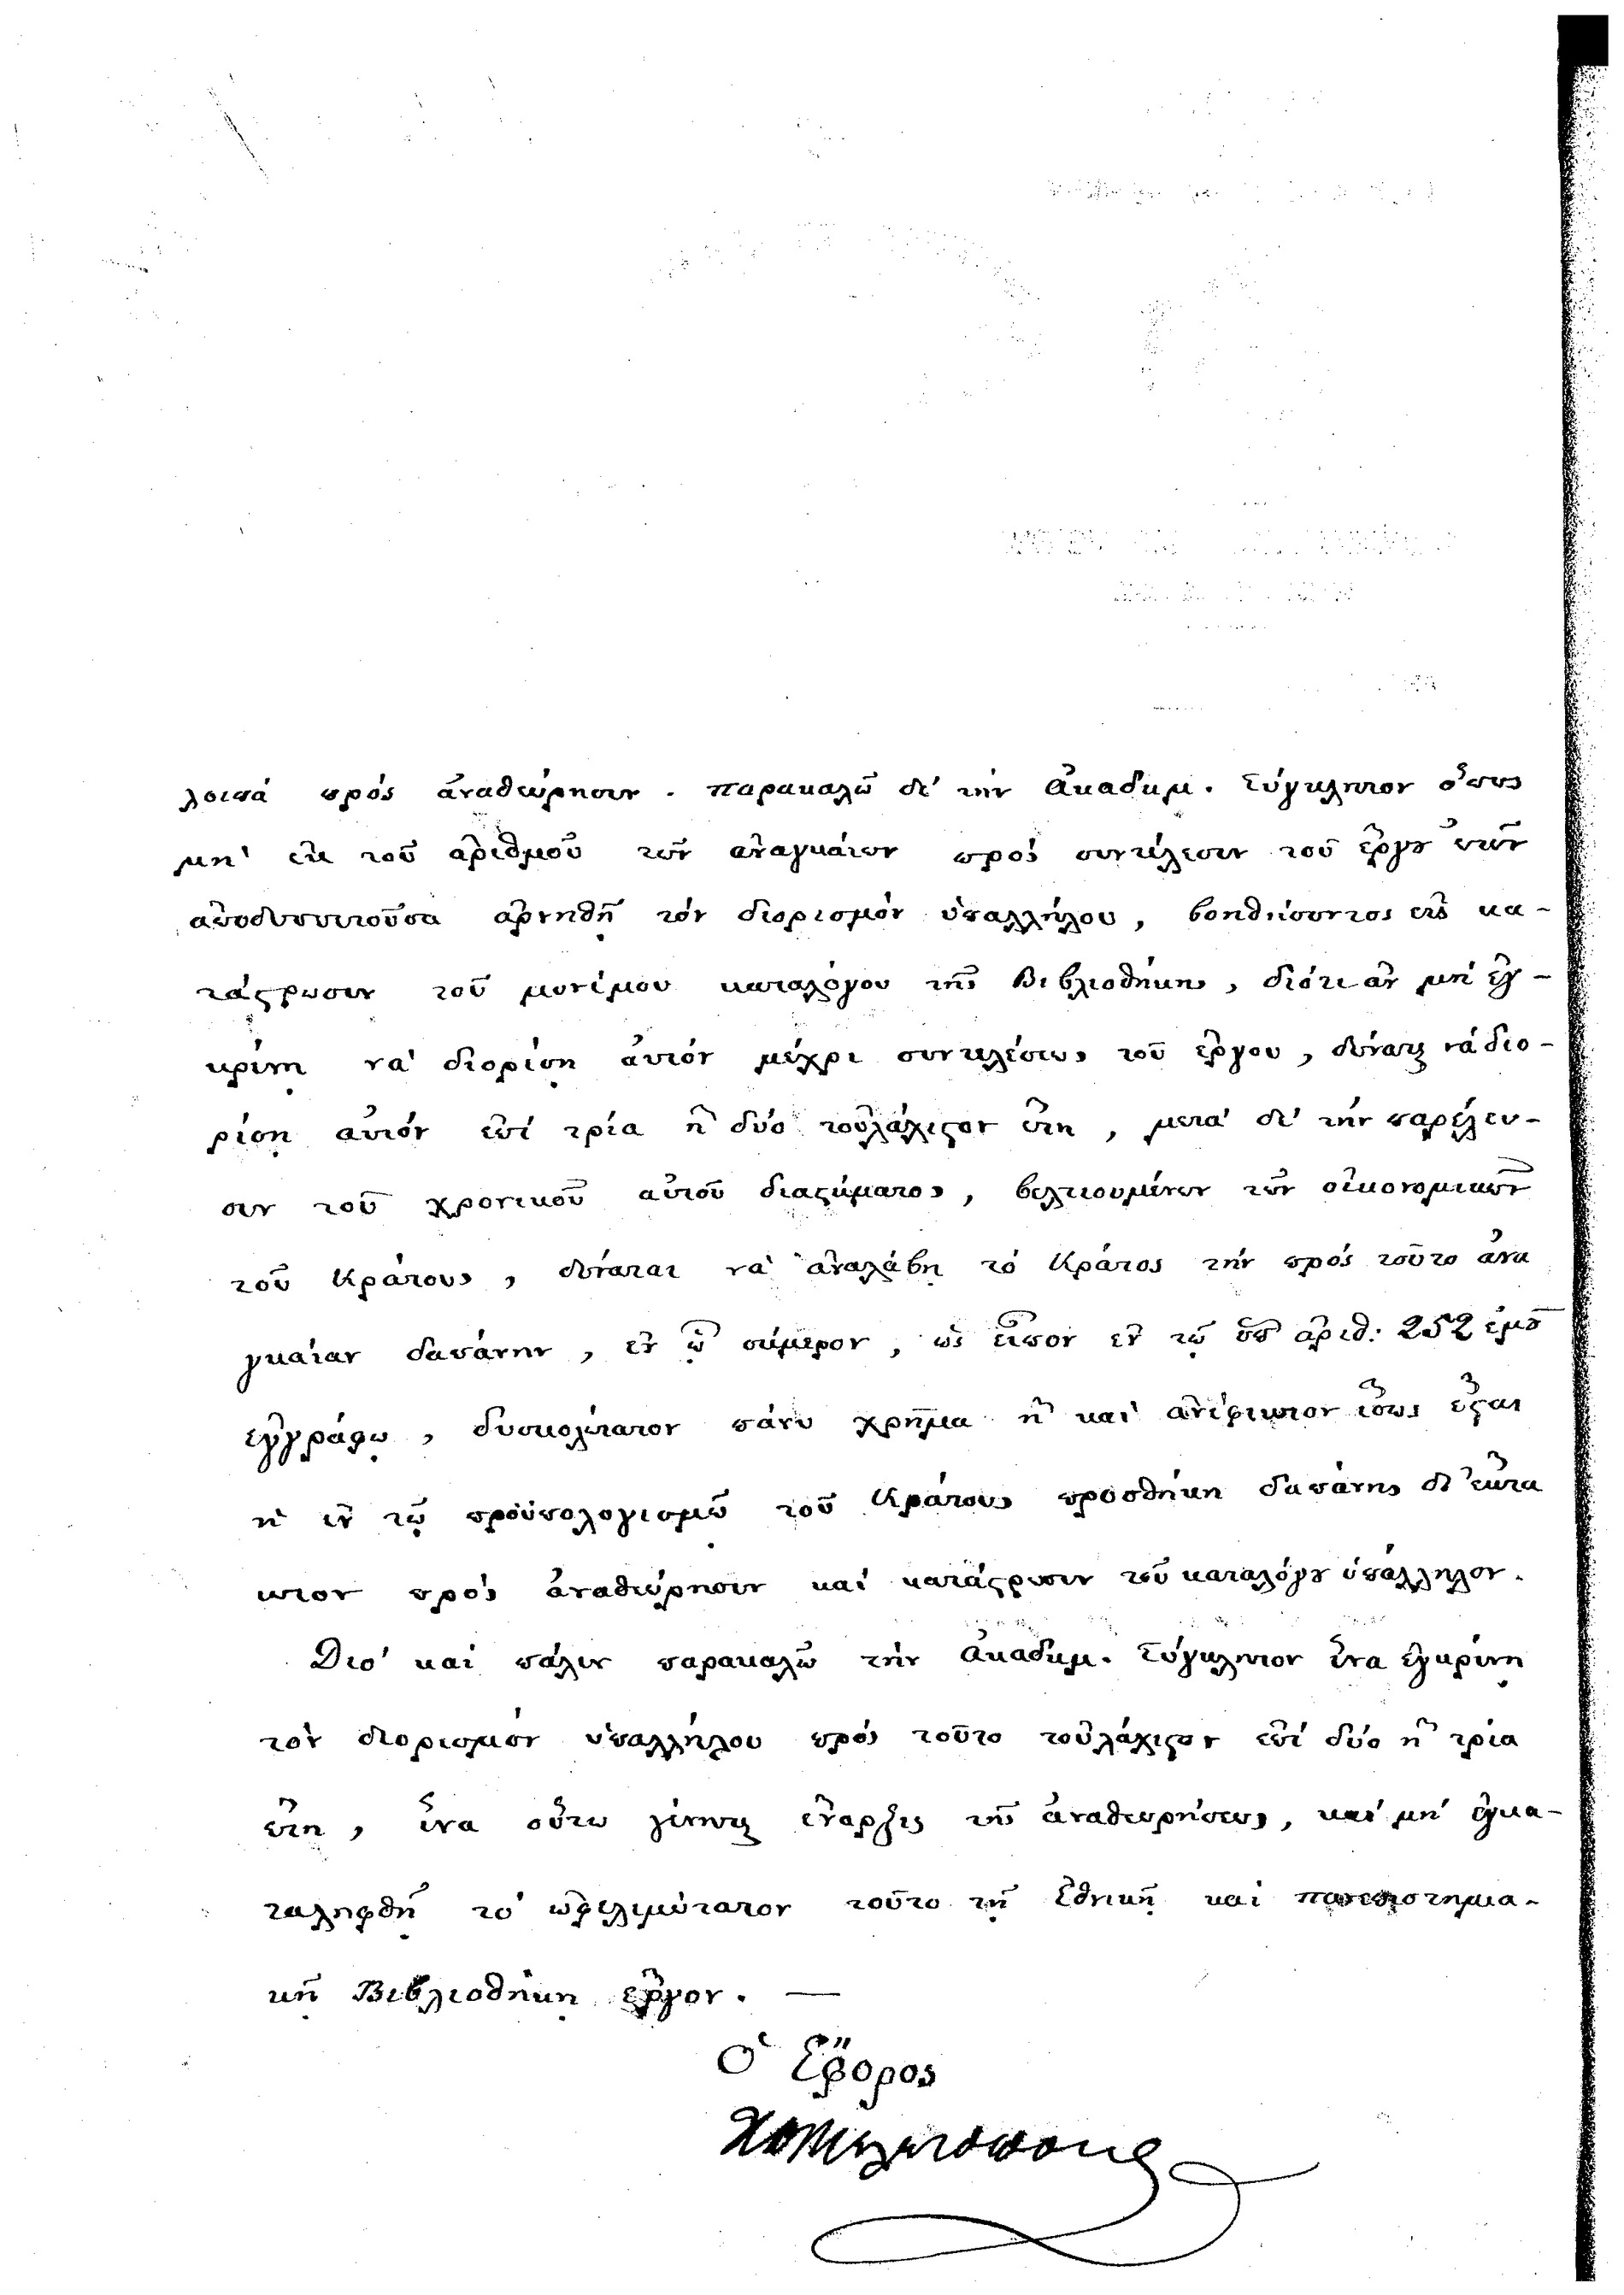 λοιπά πρὸς ἀναθεώρησιν. παρακαλῶ δὲ τὴν Ἀκαδημ. Σύγκλητον ὅπως
μὴ ἐκ τοῦ ἀριθμοῦ τῶν ἀναγκαίων πρὸς συντέλεσιν τοῦ ἔργου ἐτῶν
ἀποδυσπετοῦσα ἀρνηθῇ τὸν διορισμὸν ὑπαλλήλου, βοηθήσοντος εἰς κα-
τάστρωσιν τοῦ μονίμου καταλόγου τῆς Βιβλιοθήκης, διότι ἂν μὴ ἐγ-
κρίνῃ νὰ διορίσῃ αὐτὸν μέχρι συντελέσεως τοῦ ἔργου, δύναται νὰ διο-
ρίσῃ αὐτὸν ἐπὶ τρία ἢ δύο τοὐλάχιστον ἔτη, μετὰ δὲ τὴν παρέλευ-
σιν τοῦ χρονικοῦ αὐτοῦ διαστήματος, βελτιουμένων τῶν οἰκονομικῶν
τοῦ Κράτους, δύναται νὰ ἀναλάβῃ τὸ Κράτος τὴν πρὸς τοῦτο ἀνα
γκαίαν δαπάνην, ἐν ᾧ σήμερον, ὡς εἶπον ἐν τῷ ὑπ' ἀριθ. 252 ἐμῷ
ἐγγράφῳ, δυσκολώτατον πάνυ χρῆμα ἢ καὶ ἀνέφικτον ἴσως ἔσται
ἡ ἐν τῷ προϋπολογισμῷ τοῦ Κράτους προσθήκη δαπάνης δι' ἔκτα
κτον πρὸς ἀναθεώρησιν καὶ κατάστρωσιν τοῦ καταλόγου ὑπάλληλον.
Διὸ καὶ πάλιν παρακαλῶ τὴν Ἀκαδημ. Σύγκλητον ἵνα ἐγκρίνῃ
τὸν διορισμὸν ὑπαλλήλου πρὸς τοῦτο τοὐλάχιστον ἐπὶ δύο ἢ τρία
ἔτη, ἵνα οὕτω γίνηται ἔναρξις τῆς ἀναθεωρήσεως, καὶ μὴ ἐγκα-
ταλειφθῇ τὸ ὠφελιμώτατον τοῦτο τῇ Ἐθνικῇ καὶ Πανεπιστημια-
κῇ Βιβλιοθήκῃ ἔργον. —
Ὁ Ἔφορος